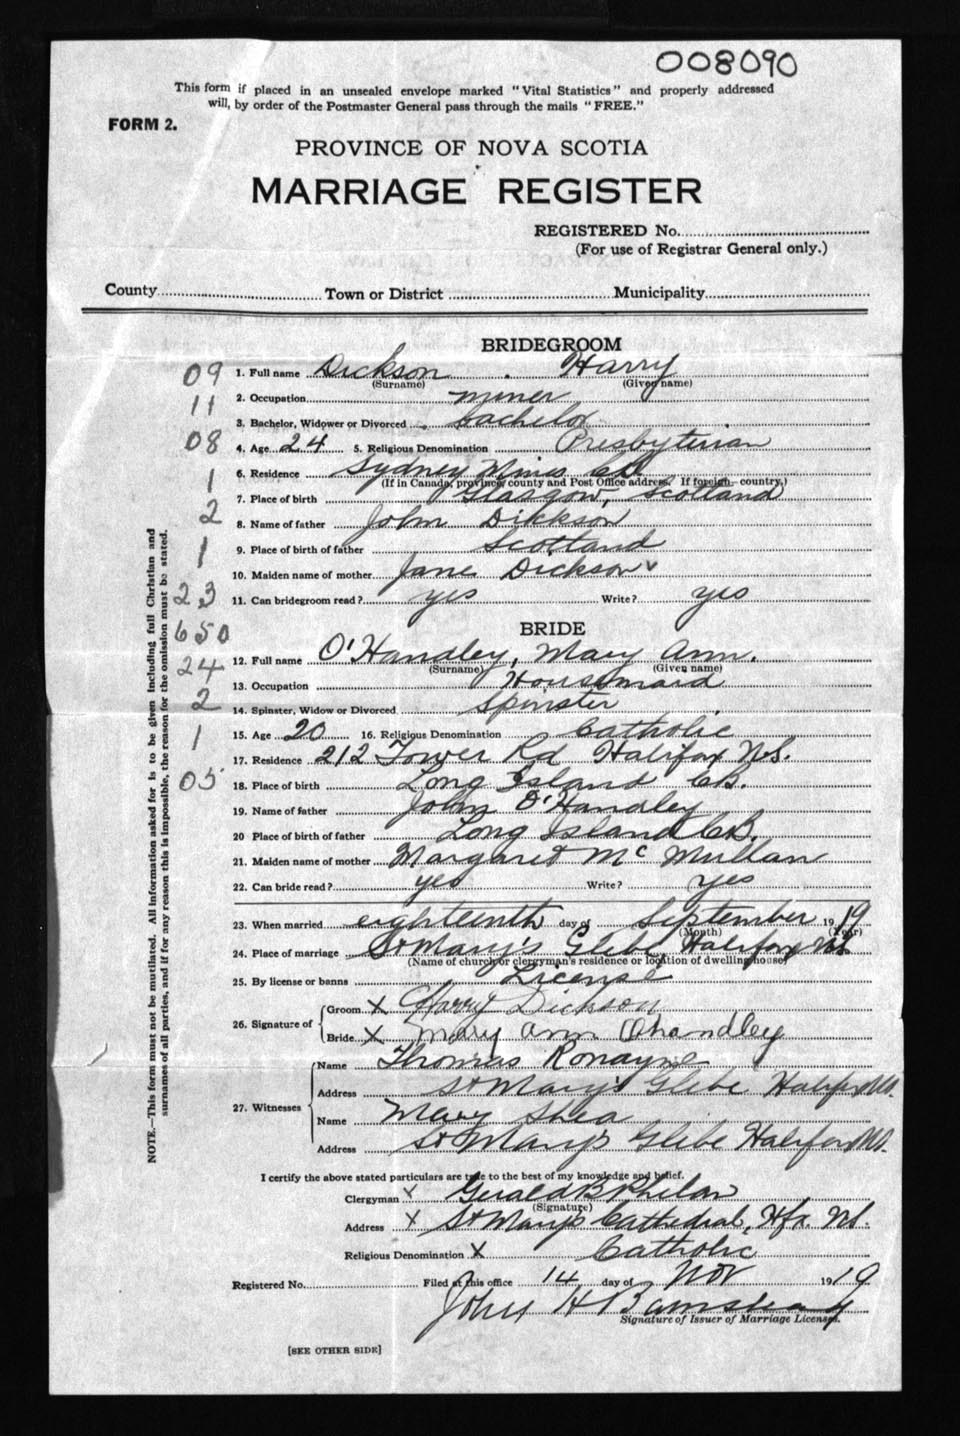 008090
This form if placed in an unsealed envelope marked "Vital Statistics" and properly addressed
will, by order of the Postmaster General pass through the mails "FREE."
FORM 2.
PROVINCE OF NOVA SCOTIA
MARRIAGE REGISTER
REGISTERED No.
(For use of Registrar General only.)
County Town or District Municipality
BRIDEGROOM
09 1. Full name Dickson Harry
(Surname) (Given name)
11 2. Occupation miner
3. Bachelor, Widower or Divorced bachelor
08 4. Age 24 5. Religious Denomination Presbyterian
6. Residence Sydney Mines CB
1 (If in Canada, province, county and Post Office address. If foreign—country.)
7. Place of birth Glasgow, Scotland
2 8. Name of father John Dickson
1 9. Place of birth of father Scotland
10. Maiden name of mother Jane Dickson
23 11. Can bridegroom read? yes Write? yes
650 BRIDE
24 12. Full name O'Handley, Mary Ann.
(Surname) (Given name)
13. Occupation Housemaid
2 14. Spinster, Widow or Divorced Spinster
1 15. Age 20 16. Religious Denomination Catholic
17. Residence 212 Tower Rd Halifax N.S.
05 18. Place of birth Long Island CB.
19. Name of father John O'Handley
20 Place of birth of father Long Island CB.
21. Maiden name of mother Margaret Mc Mullan
22. Can bride read? yes Write? yes
23. When married eighteenth day of September 1919
(Month) (Year)
24. Place of marriage St Mary's Glebe Halifax NS
(Name of church or clergyman's residence or location of dwelling house)
25. By license or banns License
26. Signature of Groom X Harry Dickson
Bride X Mary Ann Ohandley
27. Witnesses Name Thomas Ronayne
Address St Mary's Glebe Halifax NS.
Name Mary Shea
Address St Mary's Glebe Halifax NS.
I certify the above stated particulars are true to the best of my knowledge and belief.
Clergyman X Gerald B Phelan
(Signature)
Address X St Mary's Cathedral, Hfx. NS.
Religious Denomination X Catholic
Registered No. Filed at this office 14 day of Nov 1919
John H Barnstead
Signature of Issuer of Marriage Licenses.
[SEE OTHER SIDE]
NOTE.—This form must not be mutilated. All information asked for is to be given including full Christian and
surnames of all parties, and if for any reason this is impossible, the reason for the omission must be stated.